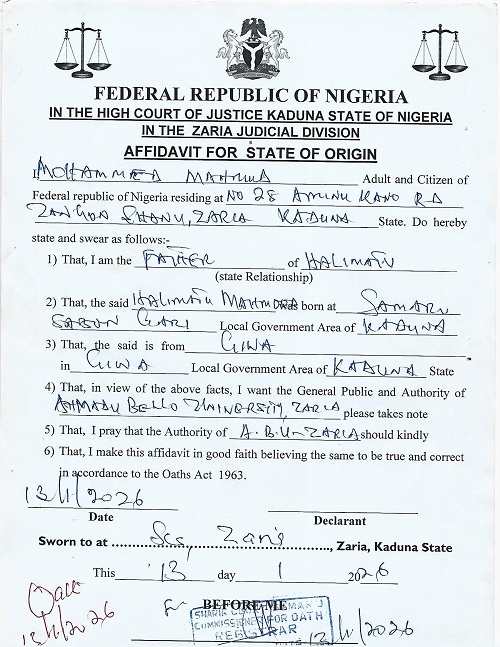 FEDERAL REPUBLIC OF NIGERIA
IN THE HIGH COURT OF JUSTICE KADUNA STATE OF NIGERIA
IN THE ZARIA JUDICIAL DIVISION
AFFIDAVIT FOR STATE OF ORIGIN
I, MOHAMMED MAHMUD Adult and Citizen of
Federal republic of Nigeria residing at NO 28 AMINU KANO RD
ZANGON SHANU, ZARIA KADUNA State. Do hereby
state and swear as follows:-
1) That, I am the FATHER of HALIMATU
(state Relationship)
2) That, the said HALIMATU MAHMUD was born at SAMARU
SABON GARI Local Government Area of KADUNA
3) That, the said is from GIWA
in GIWA Local Government Area of KADUNA State
4) That, in view of the above facts, I want the General Public and Authority of
AHMADU BELLO UNIVERSITY, ZARIA please takes note
5) That, I pray that the Authority of A.B.U. ZARIA should kindly
6) That, I make this affidavit in good faith believing the same to be true and correct
in accordance to the Oaths Act 1963.
13/1/2026
Date Declarant
Sworn to at Zaria, Zaria, Kaduna State
This 13 day 1 2026
BEFORE ME
COMMISSIONER FOR OATH
REGISTRAR
13/1/2026
13/1/2026